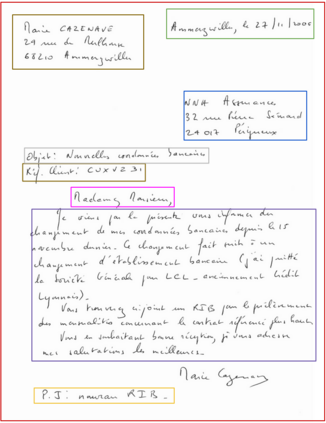 Marie CAZENAVE
29 rue de Mulhouse
68210 Ammerzwiller
Ammerzwiller, le 27/11/2006
NNA Assurance
32 rue Pierre Sémard
24017 Périgueux
Objet: Nouvelles coordonnées bancaires
Réf. Client: CUXVZ 31
Madame, Monsieur,
Je viens par la présente vous informer du
changement de mes coordonnées bancaires depuis le 15
novembre dernier. Ce changement fait suite à un
changement d'établissement bancaire (j'ai quitté
la Société Générale pour LCL - anciennement Crédit
Lyonnais).
Vous trouverez ci-joint un RIB pour le prélèvement
des mensualités concernant le contrat référencé plus haut.
Vous en souhaitant bonne réception, je vous adresse
mes salutations les meilleures.
Marie Cazenave
P.J: nouveau RIB.